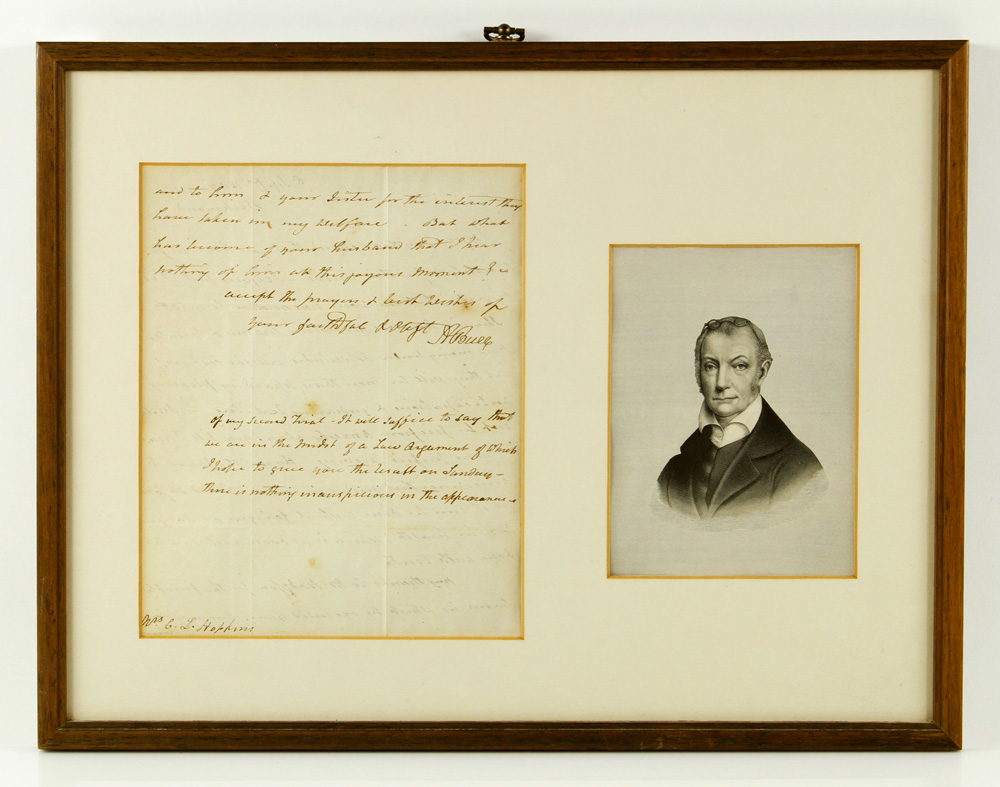 and to him & your Sister for the interest they
have taken in my Welfare. But what
has become of your husband that I hear
nothing of him at this joyous Moment &c
accept the prayers & best Wishes of
Your faithful & ABurr
of my second Trial - It will suffice to say that
we are in the Midst of a Law Argument of Which
I hope to give you the Result on Sunday -
there is nothing inauspicious in the appearances
Mrs C. L. Hopkins